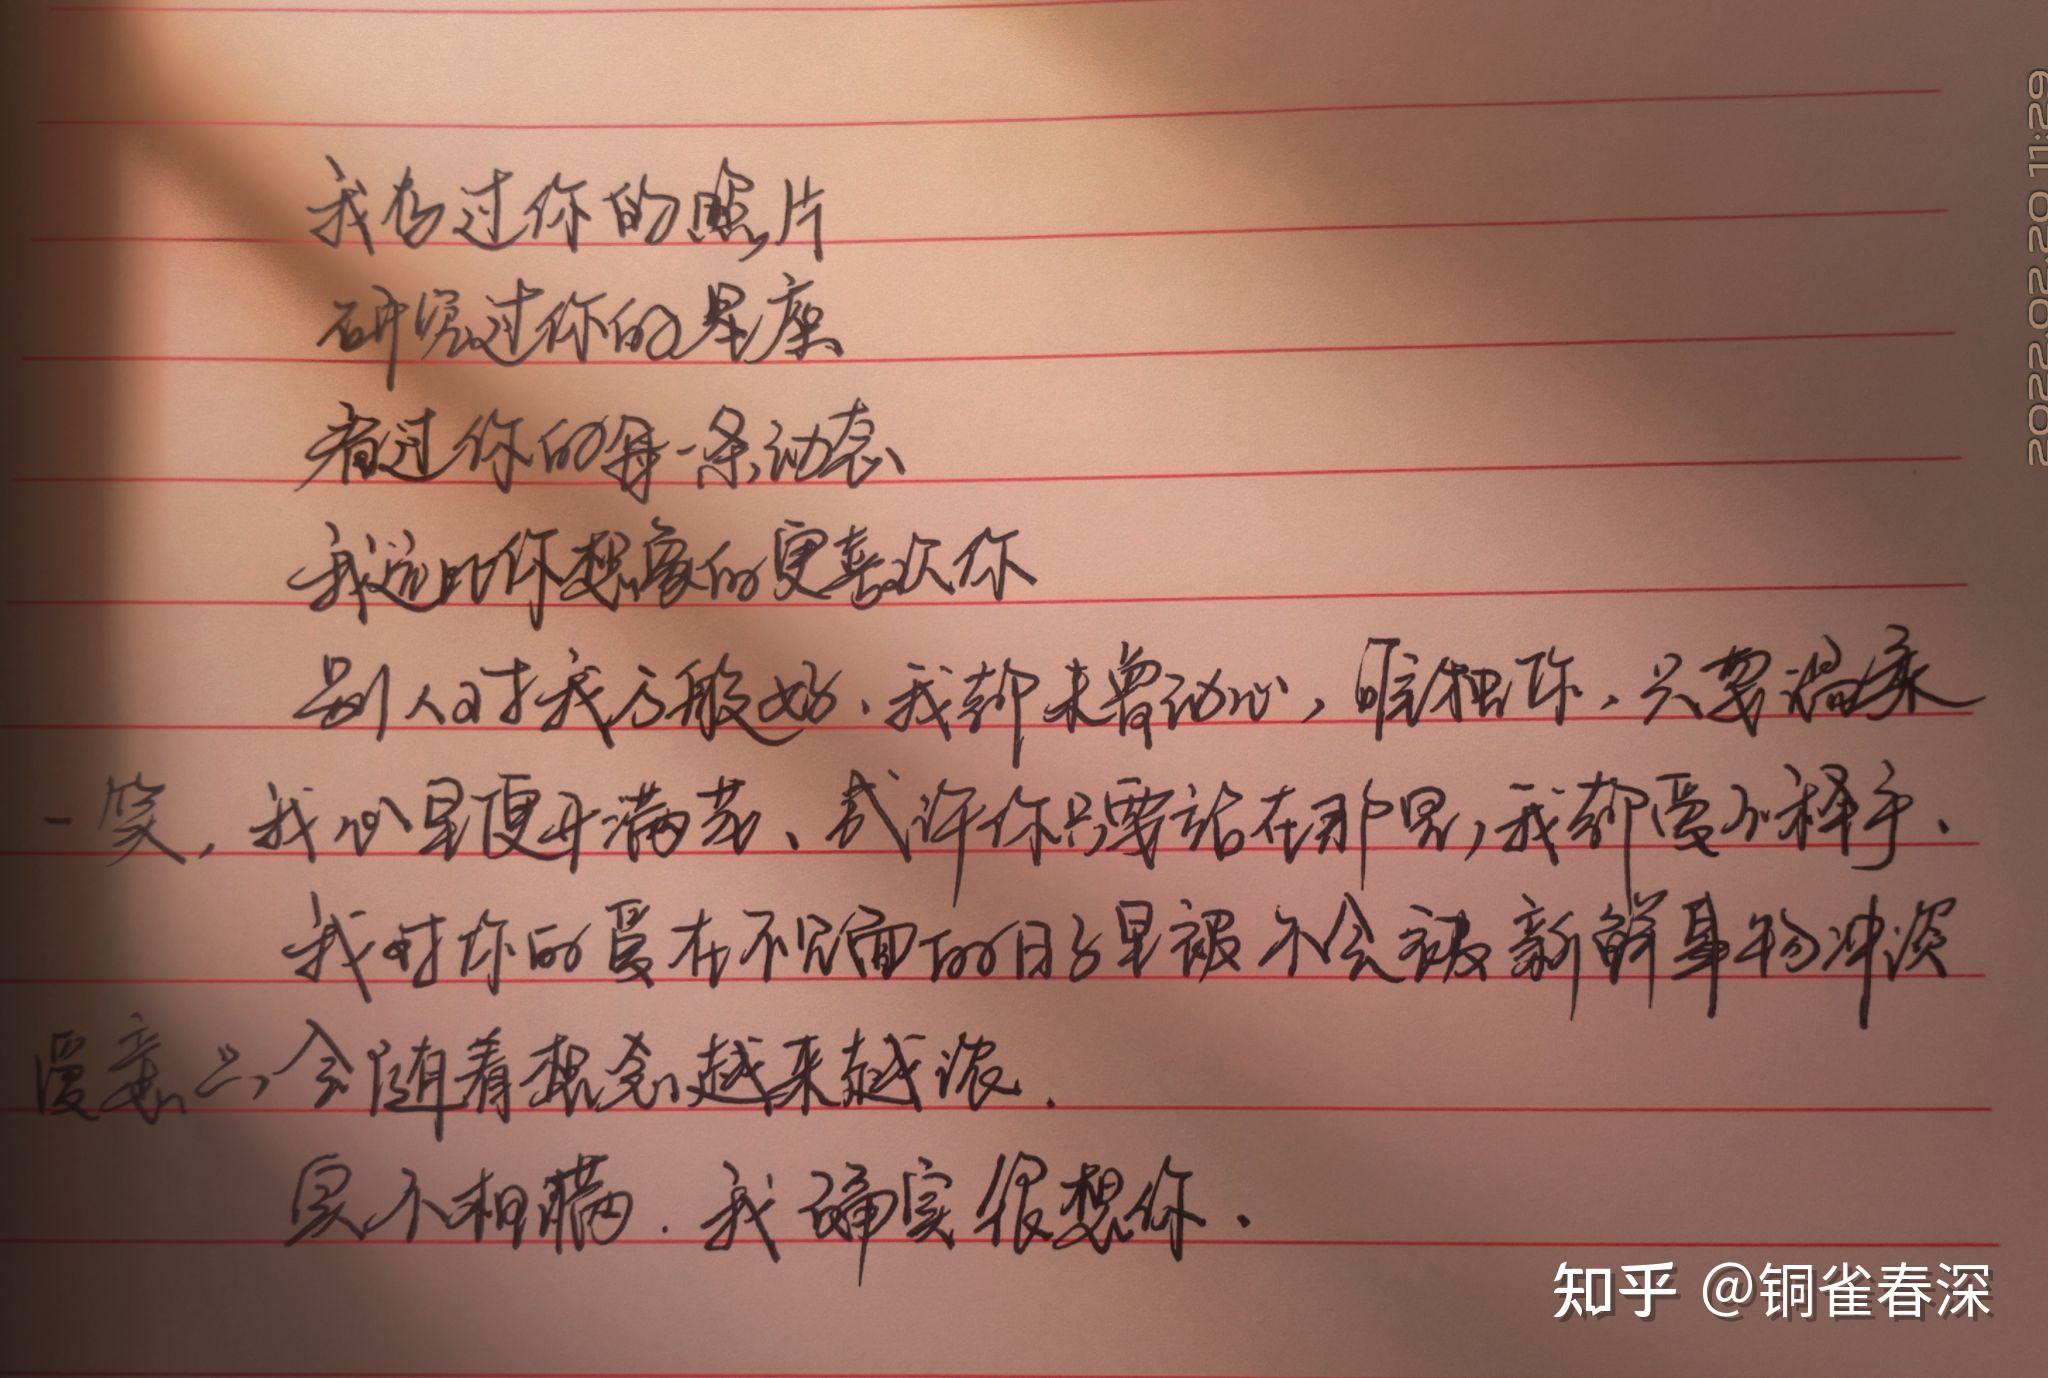 我存过你的照片
研究过你的星座
看过你的每一条动态
我远比你想象的更喜欢你
别人对我万般好、我都未曾动心，唯独你、只要温柔
一笑，我心里便开满花、或许你只要站在那里，我都爱不释手、
我对你的爱在不见面的日子里被不会被新鲜事物冲淡
爱意只会随着想念越来越浓.
实不相瞒.我确实很想你.
知乎 @铜雀春深
2022.02.20 11:29